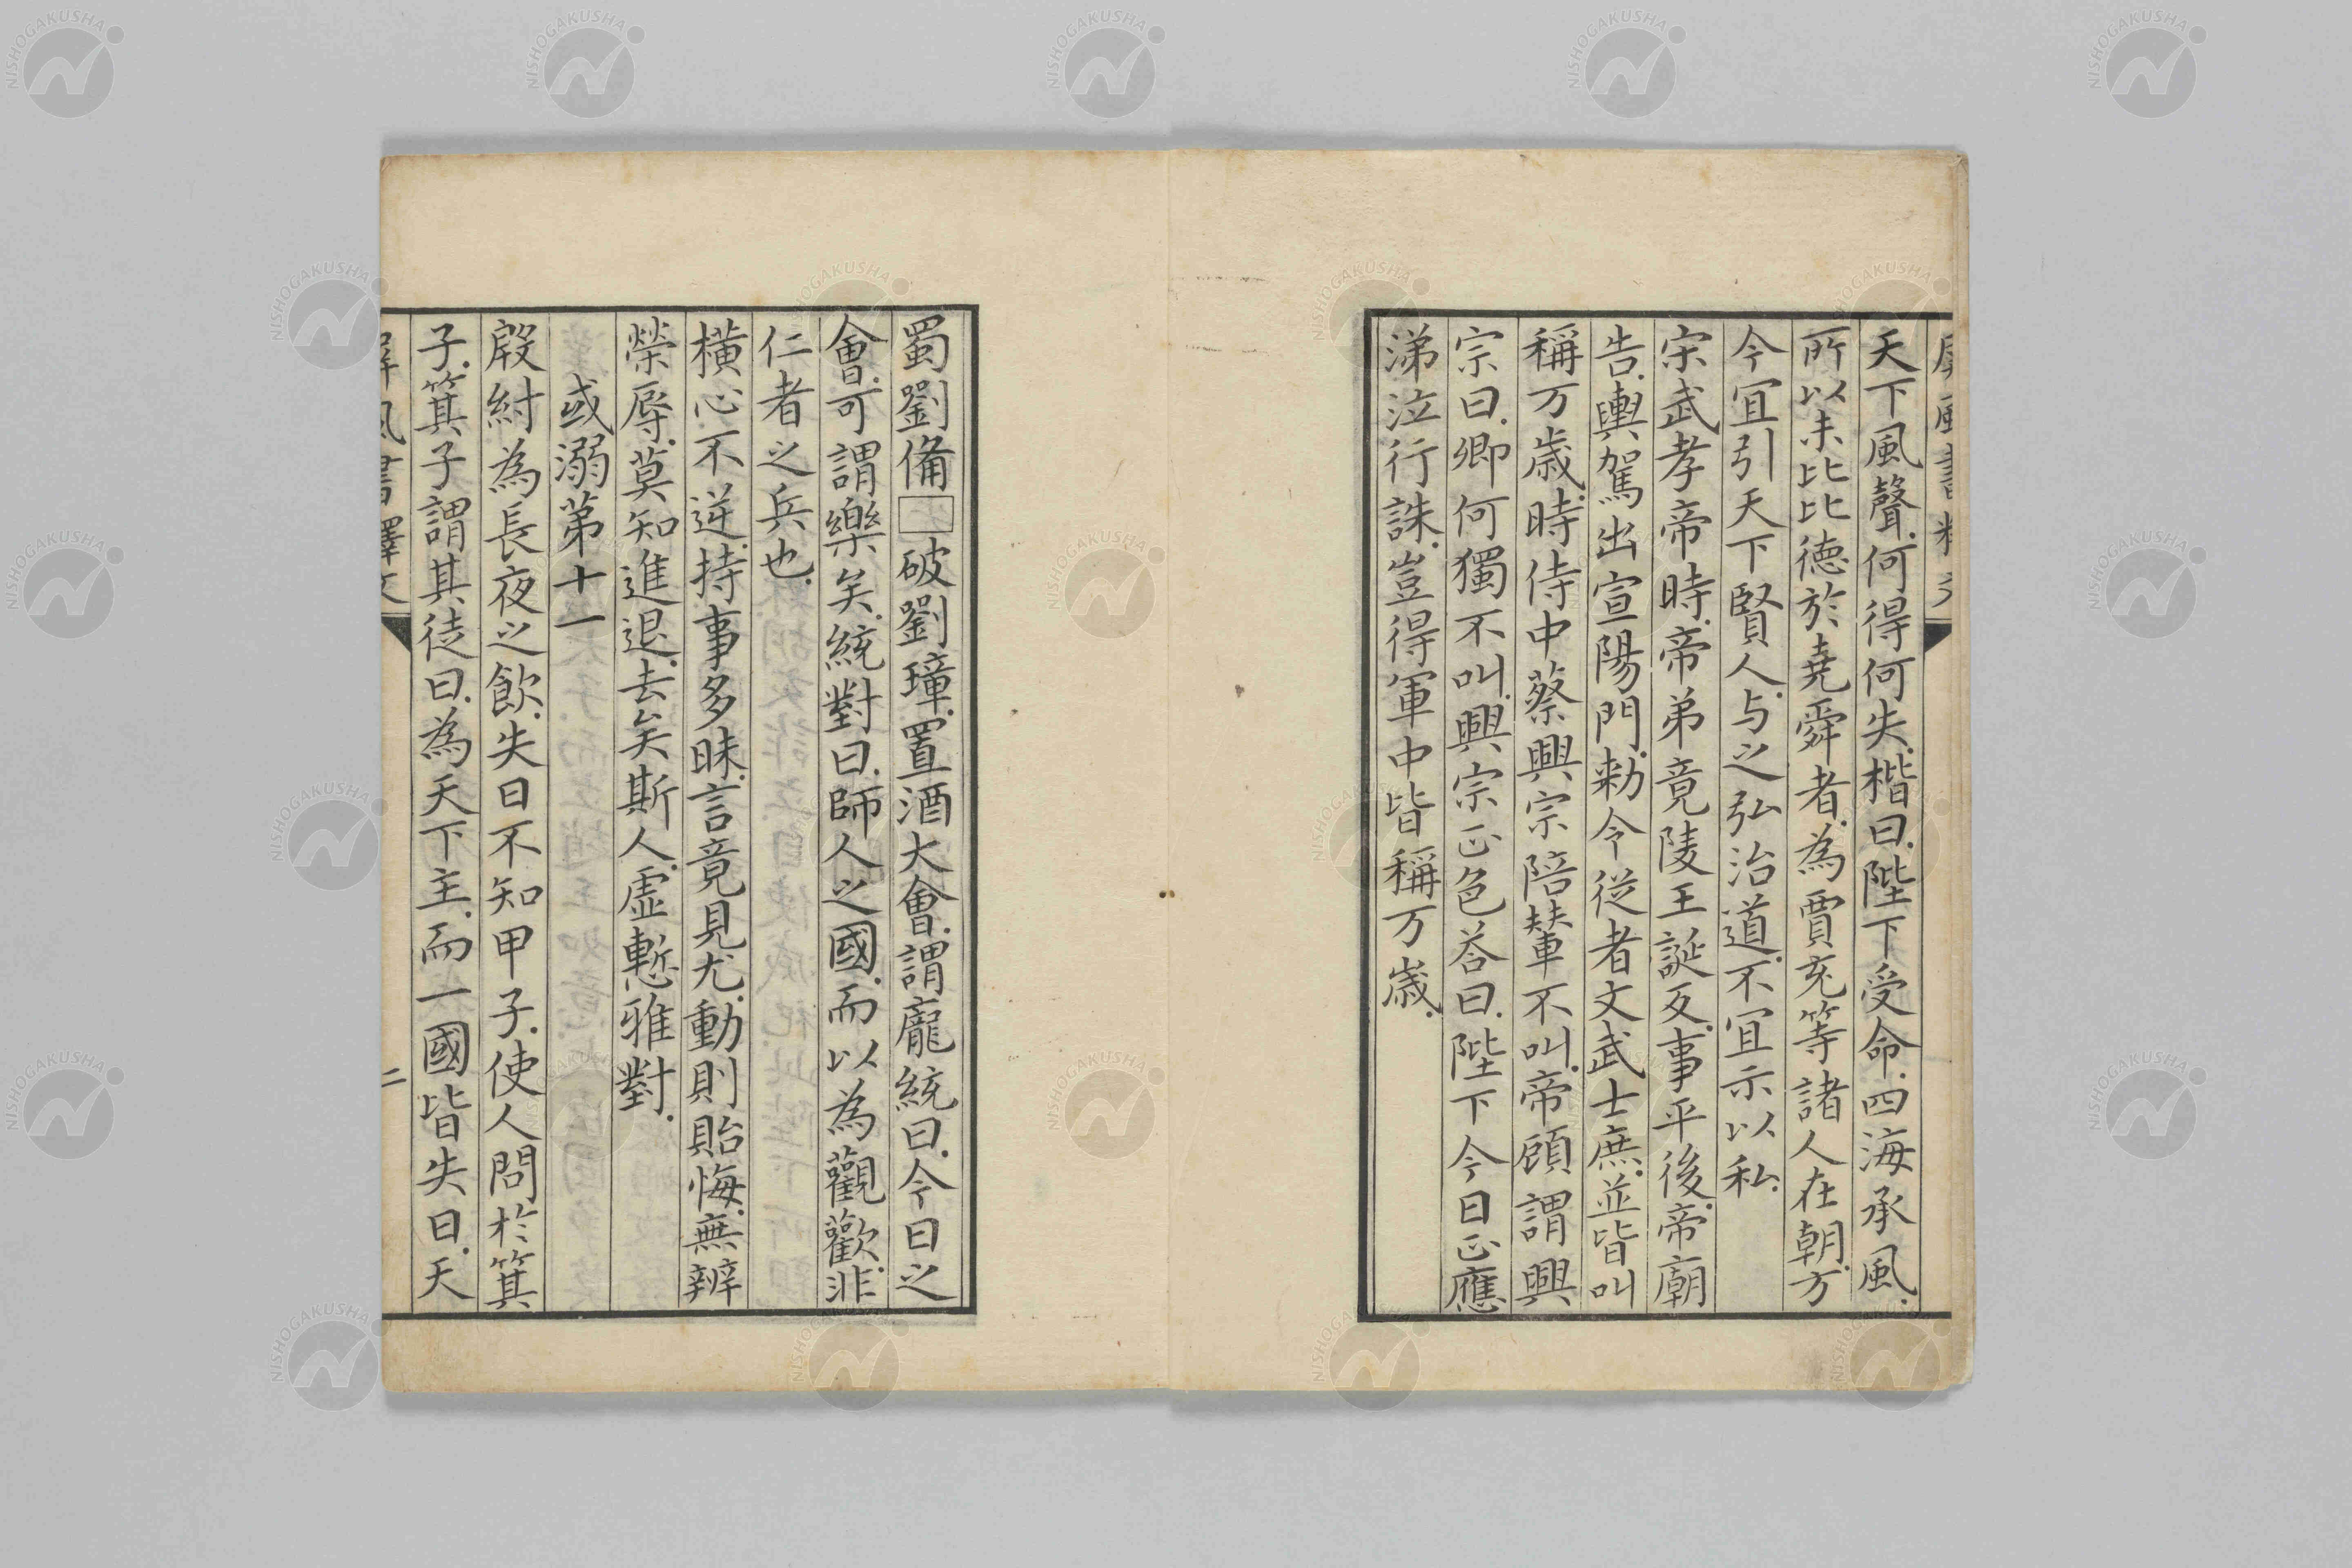 屏風書釋文
天下風聲.何得何失.楷曰.陛下受命.四海承風.
所以未比比德於堯舜者.為賈充等諸人在朝.方
今宜引天下賢人.与之弘治道.不宜示以私.
宋武孝帝時.帝弟竟陵王誕反.事平後.帝廟
告.輿駕出宣陽門.勑令從者文武士庶.並皆叫
稱万歲.時侍中蔡興宗陪輦不叫.帝顧謂興
宗曰.卿何獨不叫.興宗正色荅曰.陛下今日正應
涕泣行誅.豈得軍中皆稱万歲.
蜀劉備□破劉璋.置酒大會.謂龐統曰.今日之
會.可謂樂矣.統對曰.師人之國.而以為觀歡.非
仁者之兵也.
橫心不逆.持事多昧.言竟見尤.動則貽悔.無辨
榮辱.莫知進退.去矣斯人.虛慙雅對.
或溺第十一
殷紂為長夜之飲.失日不知甲子.使人問於箕
子.箕子謂其徒曰.為天下主.而一國皆失日.天
屏風書釋文 二
NISHOGAKUSHA